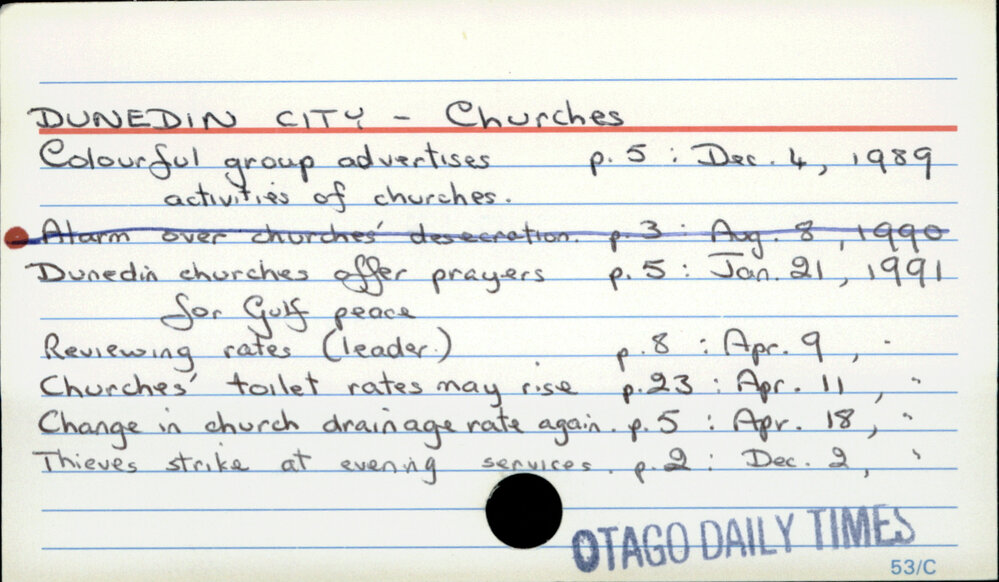 DUNEDIN CITY - Churches
Colourful group advertises p. 5 : Dec. 4, 1989
activities of churches.
Alarm over churches' desecration. p. 3 : Aug. 8, 1990
Dunedin churches offer prayers p. 5 : Jan. 21, 1991
for Gulf peace
Reviewing rates (leader.) p. 8 : Apr. 9, "
Churches' toilet rates may rise p. 23 : Apr. 11, "
Change in church drainage rate again. p. 5 : Apr. 18, "
Thieves strike at evening services. p. 2 : Dec. 2, "
OTAGO DAILY TIMES
53/C